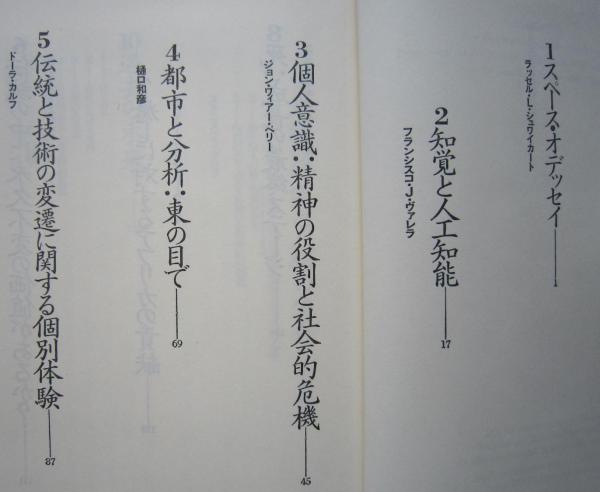 1 スペース・オデッセイ——1
ラッセル・L・シュワイカート
2 知覚と人工知能——17
フランシスコ・J・ヴァレラ
3 個人意識：精神の役割と社会的危機——45
ジョン・ウィアー・ペリー
4 都市と分析：東の目で——69
樋口和彦
5 伝統と技術の変遷に関する個別体験——87
ドーラ・カルフ